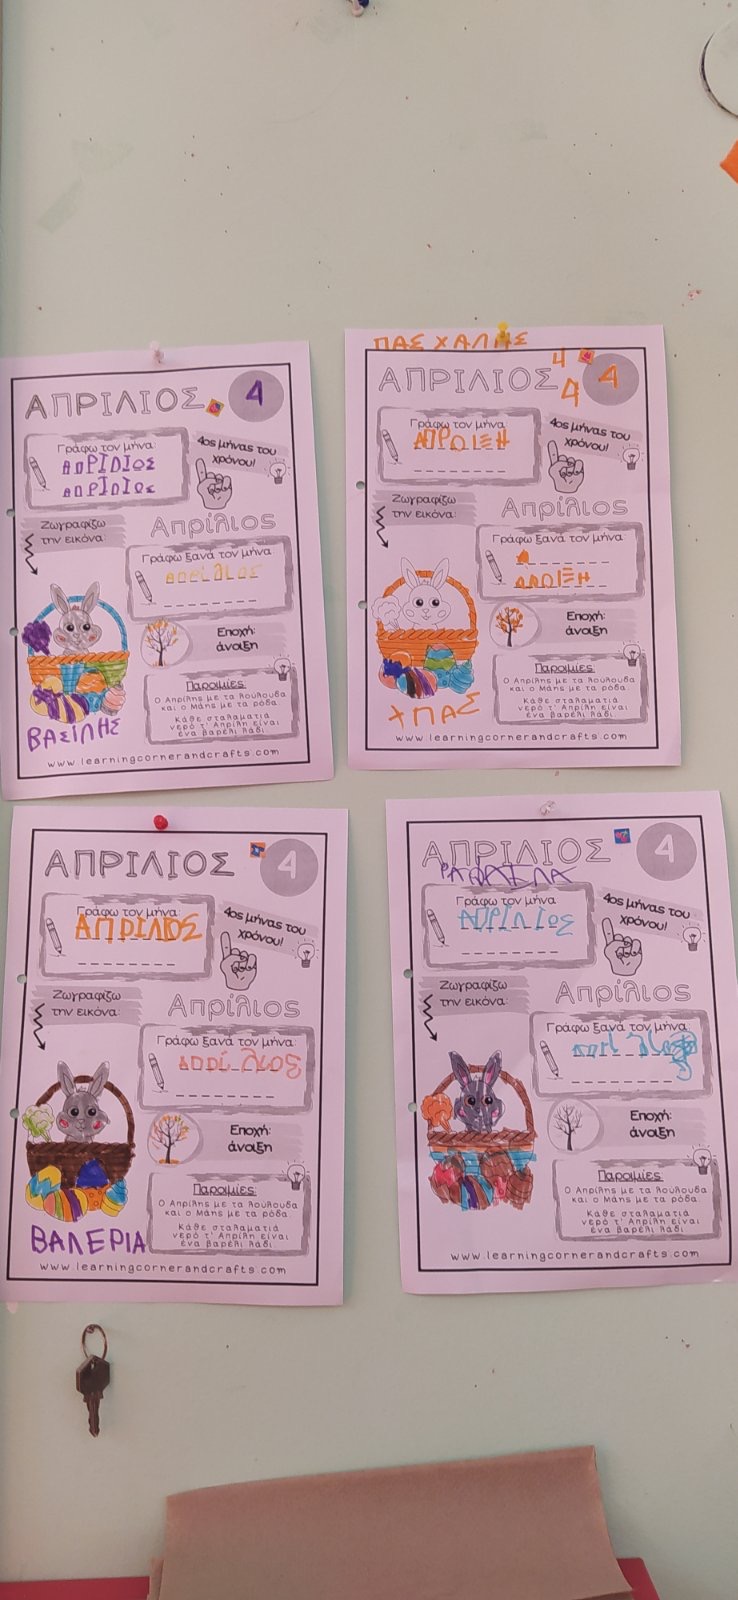 ΑΠΡΙΛΙΟΣ 4
Γράφω τον μήνα:
ΑΠΡΙΛΙΟΣ
ΑΠΡΙΛΙΟΣ
4ος μήνας του
χρόνου!
Ζωγραφίζω
την εικόνα:
Απρίλιος
Γράφω ξανά τον μήνα:
Απρίλιος
Εποχή:
άνοιξη
Παροιμίες
Ο Απρίλης με τα λούλουδα
και ο Μάης με τα ρόδα.
Κάθε σταλαματιά
νερό τ' Απρίλη είναι
ένα βαρέλι λάδι.
ΒΑΣΙΛΗΣ
www.learningcornerandcrafts.com
ΠΑΣΧΑΛΗΣ
4
ΑΠΡΙΛΙΟΣ 4 4
Γράφω τον μήνα:
4ος μήνας του
χρόνου!
Ζωγραφίζω
την εικόνα:
Απρίλιος
Γράφω ξανά τον μήνα:
Εποχή:
άνοιξη
Παροιμίες
Ο Απρίλης με τα λούλουδα
και ο Μάης με τα ρόδα.
Κάθε σταλαματιά
νερό τ' Απρίλη είναι
ένα βαρέλι λάδι.
ΧΠΑΣ
www.learningcornerandcrafts.com
ΑΠΡΙΛΙΟΣ 4
Γράφω τον μήνα:
ΑΠΡΙΛΙΟΣ
4ος μήνας του
χρόνου!
Ζωγραφίζω
την εικόνα:
Απρίλιος
Γράφω ξανά τον μήνα:
Εποχή:
άνοιξη
Παροιμίες
Ο Απρίλης με τα λούλουδα
και ο Μάης με τα ρόδα.
Κάθε σταλαματιά
νερό τ' Απρίλη είναι
ένα βαρέλι λάδι.
ΒΑΛΕΡΙΑ
www.learningcornerandcrafts.com
ΑΠΡΙΛΙΟΣ 4
Γράφω τον μήνα:
ΑΠΡΙΛΙΟΣ
4ος μήνας του
χρόνου!
Ζωγραφίζω
την εικόνα:
Απρίλιος
Γράφω ξανά τον μήνα:
Εποχή:
άνοιξη
Παροιμίες
Ο Απρίλης με τα λούλουδα
και ο Μάης με τα ρόδα.
Κάθε σταλαματιά
νερό τ' Απρίλη είναι
ένα βαρέλι λάδι.
www.learningcornerandcrafts.com